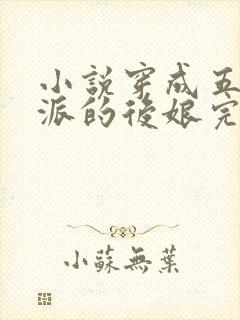 小説穿成五
派的後娘完
小蘇無葉